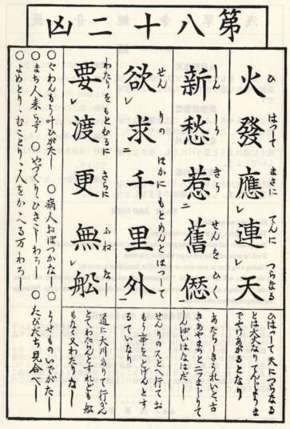 第八十二凶
火發應レ連レ天
ひはつして まさに てんに つらなる
新愁惹二舊愆一
しんしう きう せんを ひく
欲レ求二千里外一
せんりの ほかに もとめんと ほつして
要レ渡更無レ舩
わたりを もとむるに さらに ふねなし
ひはつして天につらなる
とは火
までやけあがるとなり
あたらしきうれいと、古
きあやまちと二つまじりて
しんぱいはなはだし
せんりのそとへ行てお
もふ事をとげんとす
るていなり
道に大川ありて行がた
わたらんとすれども船
もなく又わたりな
○ぐわんもう叶ひがたし ○病人おぼつかなし
○まち人来らず ○やづくりひきこしわろし
○よめとり、むことり、人をかかへる万わろし
○うせものいでがたし
○たびだち見合べし